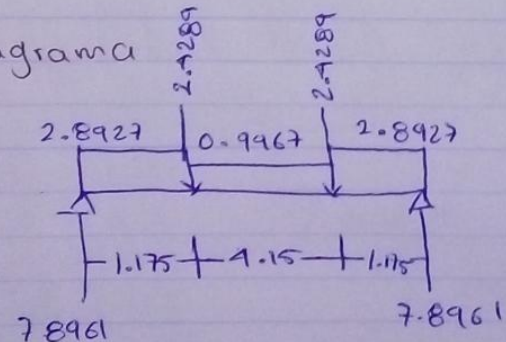 agrama
2.4289
2.4289
2.8927
0.9967
2.8927
1.175
4.15
1.175
7.8961
7.8961